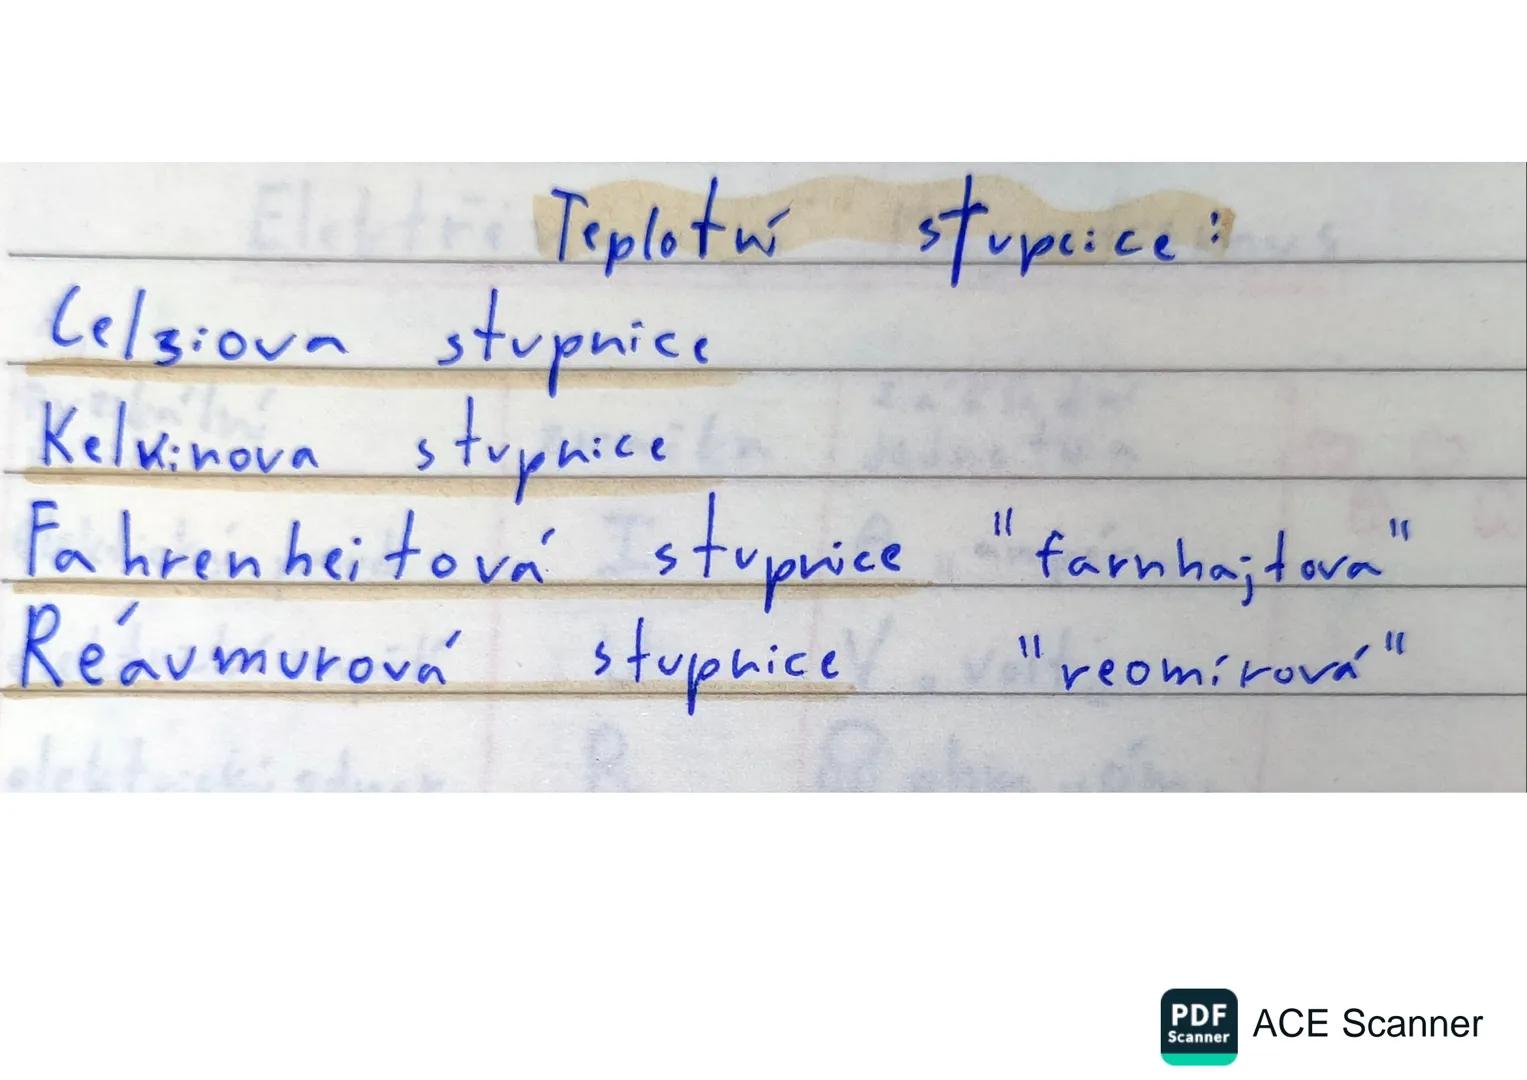 Teplotní stupcice:
Celziova stupnice
Kelvinova stupnice
Fahrenheitová stupnice "farnhajtova"
Réaumurová stupnice "reomírová"
PDF Scanner ACE Scanner